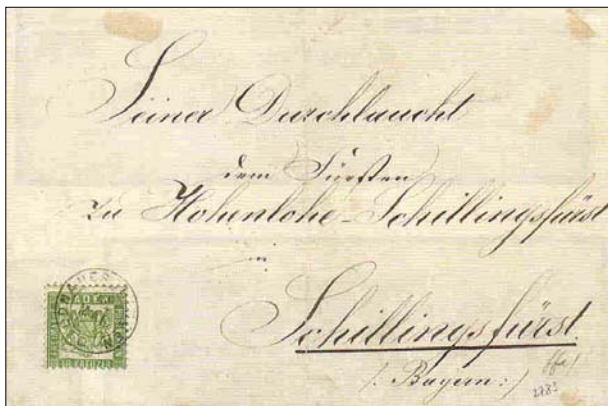 Seiner Durchlaucht
dem Fürsten
zu Hohenlohe-Schillingsfürst
in
Schillingsfürst
/: Bayern :/
BADEN